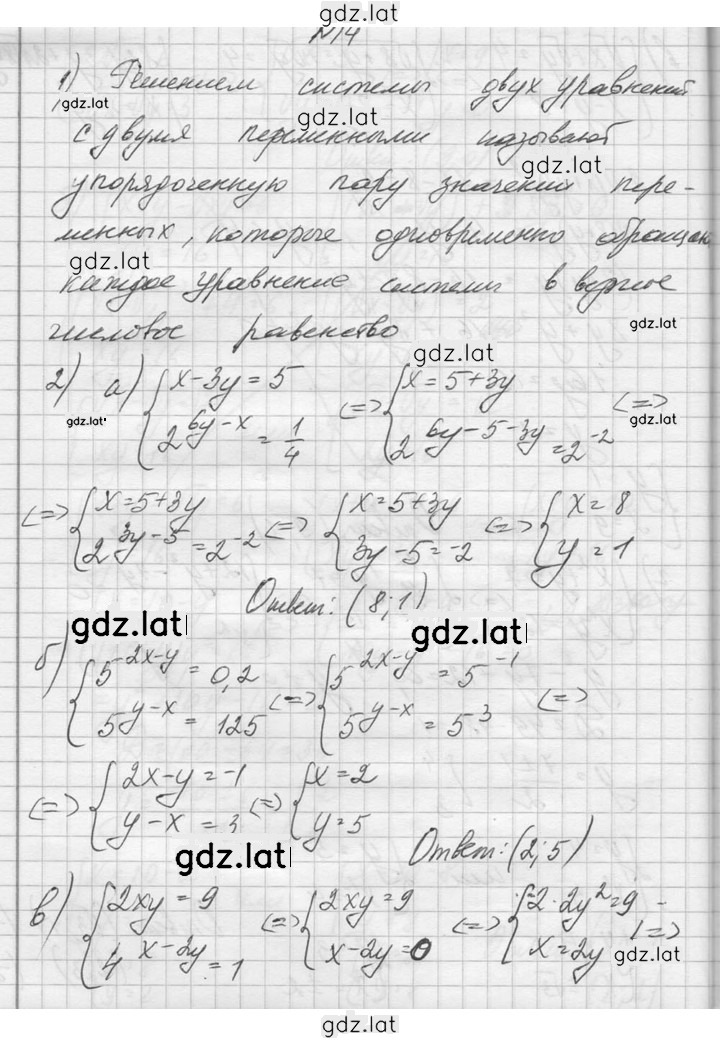 gdz.lat
N14
1) Решением системы двух уравнений
gdz.lat
gdz.lat
с двумя переменными называют
gdz.lat
упорядоченную пару значений пере-
менных, которые одновременно обращают
gdz.lat
каждое уравнение системы в верное
числовое равенство
gdz.lat
gdz.lat
2) а) { x-3y=5; 2^{6y-x}=1/4 (=> { x=5+3y; 2^{6y-5-3y}=2^{-2} (=>
gdz.lat
gdz.lat
(=> { x=5+3y; 2^{3y-5}=2^{-2} (=> { x=5+3y; 3y-5=-2 (=> { x=8; y=1
Ответ: (8;1)
gdz.lat
gdz.lat
б) { 5^{2x-y}=0,2; 5^{y-x}=125 (=> { 5^{2x-y}=5^{-1}; 5^{y-x}=5^{3} (=>
(=> { 2x-y=-1; y-x=3 (=> { x=2; y=5
Ответ: (2;5)
gdz.lat
в) { 2xy=9; 4^{x-2y}=1 (=> { 2xy=9; x-2y=0 (=> { 2·2y²=9; x=2y (=>
gdz.lat
gdz.lat